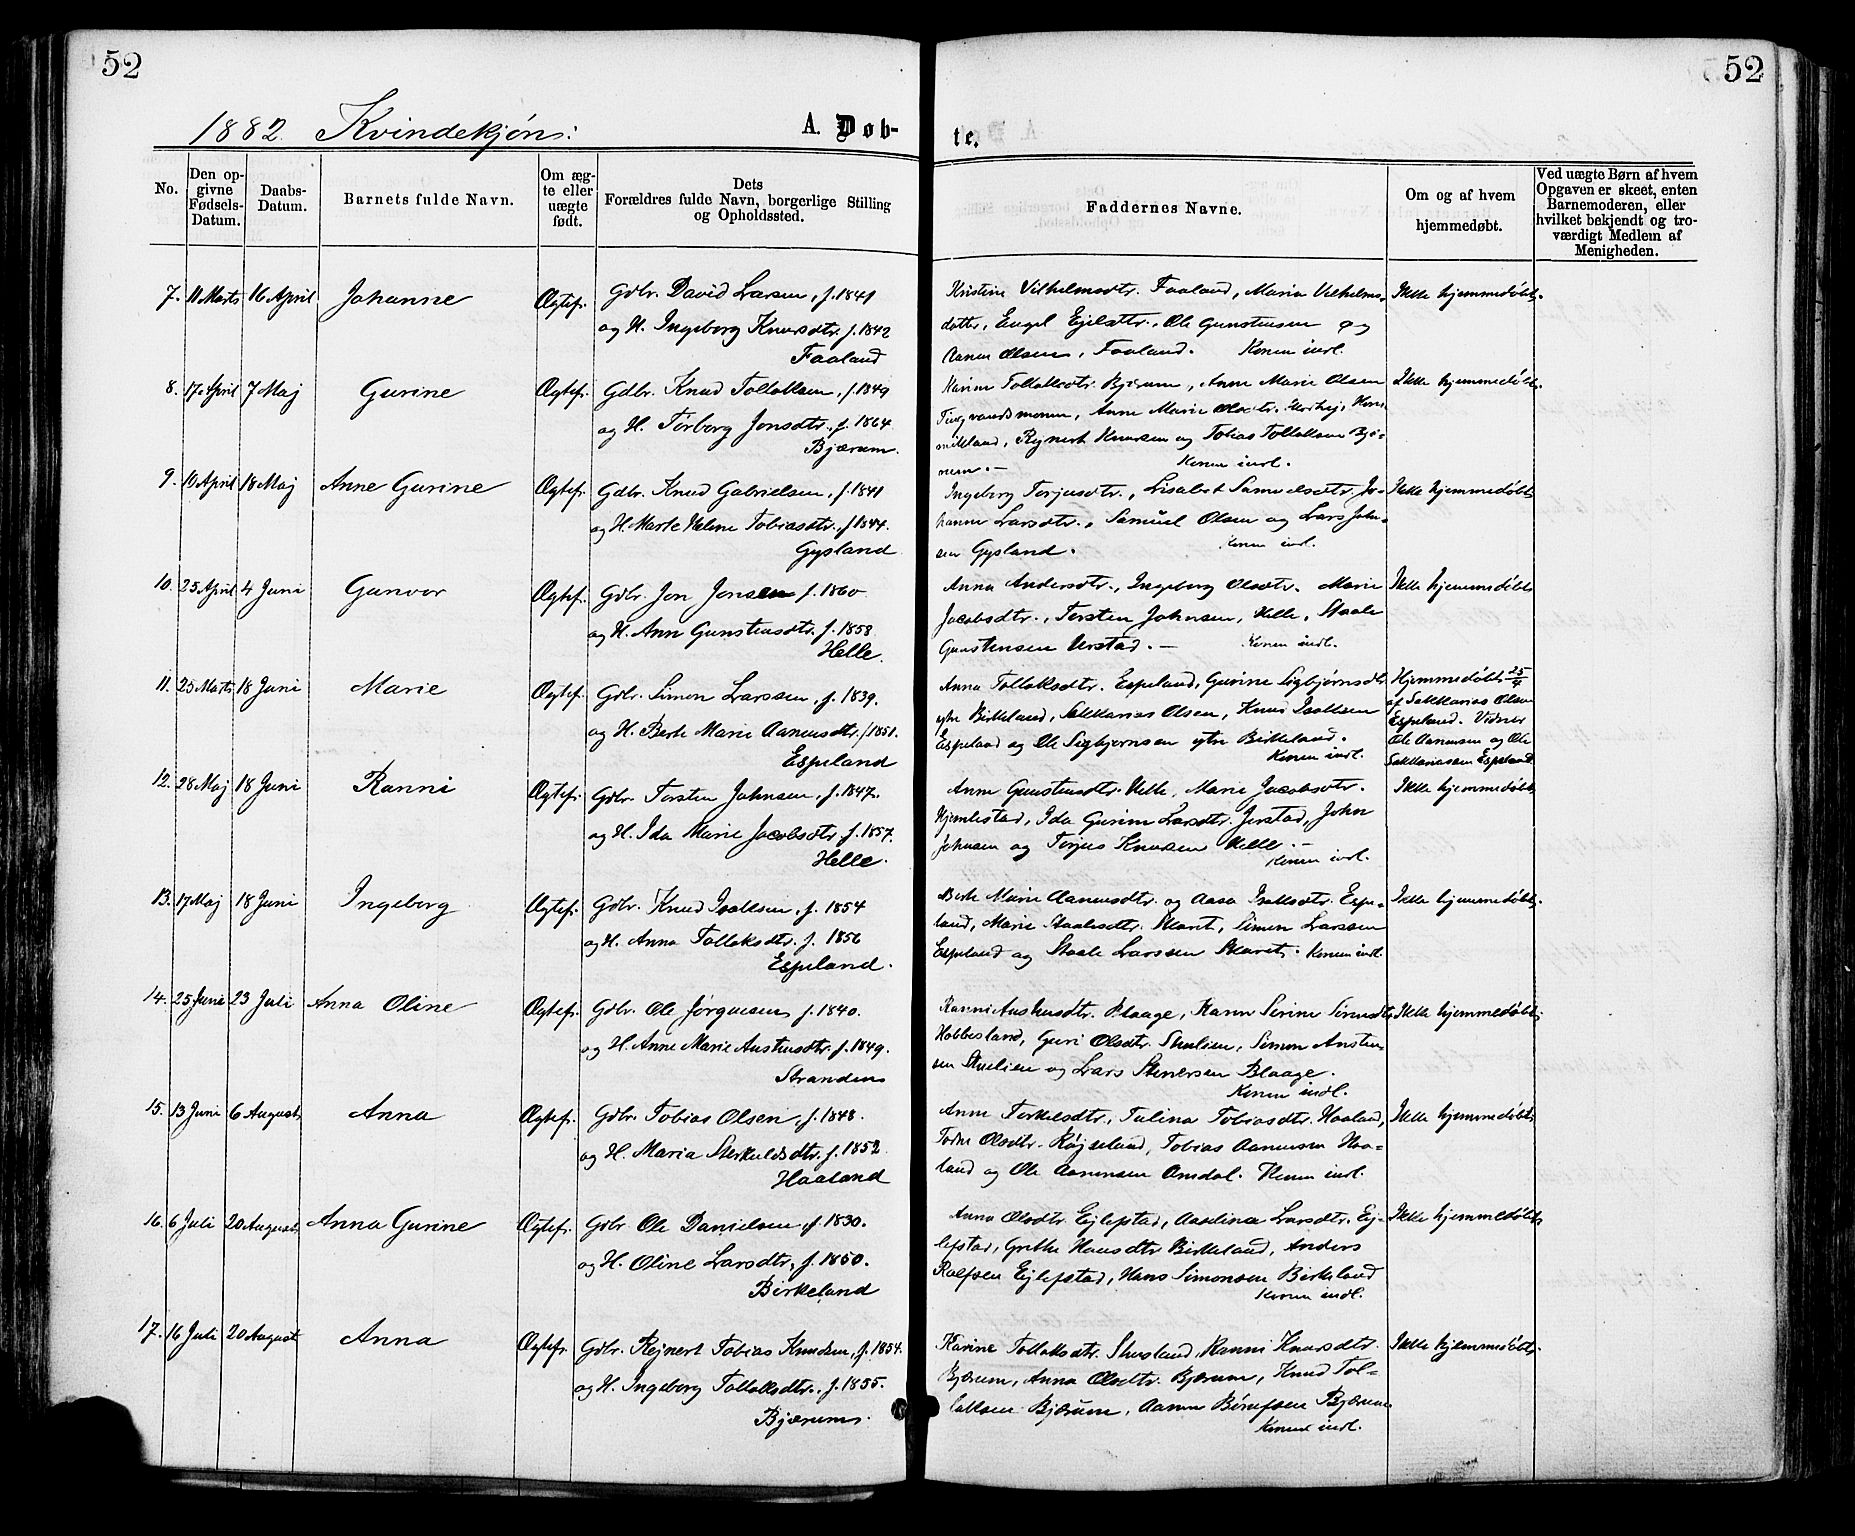 52
52
1882. Kvindekjøn:
A. Døb-
te.
No.
Den op-
givne
Fødsels-
Datum.
Daabs-
Datum.
Barnets fulde Navn.
Om æg-
te eller
uægte
født.
Dets
Forældres fulde Navn, borgerlige Stilling
og Opholdssted.
Faddernes Navne.
Om og af hvem
hjemmedøbt.
Ved uægte Børn af hvem
Opgaven er skeet, enten
Barnemoderen, eller
hvilket bekjendt og tro-
værdigt Medlem af
Menigheden.
7. 11 Marts 16 April Johanne Ægtef. Gdbr. David Larsen, f. 1841
og H. Ingeborg Knudsdtr. f. 1842
Faaland
Kristine Vilhelmsdtr. Faaland, Maria Vilhelms-
datter, Engel Ejelsdtr., Ole Gunstensen og
Aanen Olsen, Faaland. Konen indl.
Ikke hjemmedøbt.
8. 17 April 7 Maj Gurine Ægtef. Gdbr. Knud Tollaksen, f. 1849
og H. Torborg Jonsdtr. f. 1864
Bjærum.
Karine Tollaksdtr. Bjærum, Anne Marie Olsen
Tingvandsmoen, Anne Marie Olsdtr.
Rejnert Knudsen og Tobias Tollaksen Bjæ-
rum. — Konen indl.
Ikke hjemmedøbt.
9. 10 April 18 Maj Anne Gurine Ægtef. Gdbr. Knud Gabrielsen, f. 1841
og H. Marte Helene Tobiasdtr., f. 1844.
Gysland
Ingeborg Terjesdtr., Lisabet Samuelsdtr. Jo-
hanne Larsdtr., Samuel Olsen og Lars John-
sen Gysland. Konen indl.
Ikke hjemmedøbt.
10. 25 April 4 Juni Gunvor Ægtef. Gdbr. Jon Jonsen f. 1860
og H. Ann Gunstensdtr. f. 1858
Helle.
Anna Andersdtr., Ingeborg Olsdtr. Marie
Jacobsdtr., Torsten Johnsen, Helle, Staale
Gunstensen Verstad. — Konen indl.
Ikke hjemmedøbt.
11. 25 Marts 18 Juni Marie Ægtef. Gdbr. Simon Larssen, f. 1839.
og H. Berte Marie Aanensdtr. f. 1851.
Espeland
Anna Tollaksdtr. Espeland, Gurine Sigbjørnsdtr.
ytre Birkeland, Sakkarias Olsen, Knud Isaksen
Espeland og Ole Sigbjørnsen ytre Birkeland.
Konen indl.
Hjemmedøbt 25/4
af Sakkarias Olsen
Espeland. Vidner
Ole Aanensen og Ole
Sakkariassen Espeland
12. 28 Maj 18 Juni Ranni Ægtef. Gdbr. Torsten Johnsen, f. 1847.
og H. Ida Marie Jacobsdtr. f. 1857.
Helle.
Anne Gunstensdtr. Helle, Marie Jacobsdtr.
Hjemlestad, Ida Gurine Larsdtr. Jerstad, John
Johnsen og Terjes Knudsen Helle. —
Konen indl.
Ikke hjemmedøbt.
13. 17 Maj 18 Juni Ingeborg Ægtef. Gdbr. Knud Isaksen, f. 1854
og H. Anna Tollaksdtr. f. 1856
Espeland.
Berte Marie Aanensdtr. og Aasa Isaksdtr. Espe-
land, Marie Staalesdtr. Skaret, Simon Larssen
Espeland og Staale Larssen Skaret. Konen indl.
Ikke hjemmedøbt.
14. 25 Juni 23 Juli Anna Oline Ægtef. Gdbr. Ole Jørgensen f. 1840.
og H. Anne Marie Austensdtr. f. 1849.
Stranden
Ranni Austensdtr. Blaage, Karen Serine Sørensdtr.
Hobbesland, Guri Olsdtr. Skulien, Simon Austen-
sen Skulien og Lars Stenersen Blaage.
Konen indl.
Ikke hjemmedøbt.
15. 13 Juni 6 August Anna Ægtef. Gdbr. Tobias Olsen, f. 1848.
og H. Maria Sterkuldsdtr. f. 1852.
Haaland
Anne Terkelsdtr., Talina Tobiasdtr. Haaland,
Olsdtr. Røjseland, Tobias Aanensen Haa-
land og Ole Aanensen Omdal. Konen indl.
Ikke hjemmedøbt.
16. 6 Juli 20 August Anna Gurine Ægtef. Gdbr. Ole Danielsen f. 1830.
og H. Oline Larsdtr, f. 1850.
Birkeland
Anna Olsdtr. Ejlefstad, Aaselina Larsdtr. Ej-
lefstad, Grethe Hansdtr. Birkeland, Anders
Rolfsen Ejlefstad, Hans Simonsen Birkeland
Konen indl.
Ikke hjemmedøbt.
17. 16 Juli 20 August Anna Ægtef. Gdbr. Rejnert Tobias Knudsen, f. 1854.
og H. Ingeborg Tollaksdtr., f. 1855.
Bjærum.
Karine Tollaksdtr. Skusland, Ranni Knudsdtr.
Bjærum, Anna Olsdtr. Bjærum, Knud Tol-
laksen Bjærum, Aanen Børufsen Bjærum
Konen indl.
Ikke hjemmedøbt.